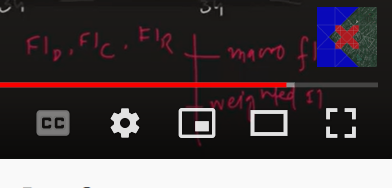 34 34
F1D, F1C, F1R macro f1
weighted f1
CC